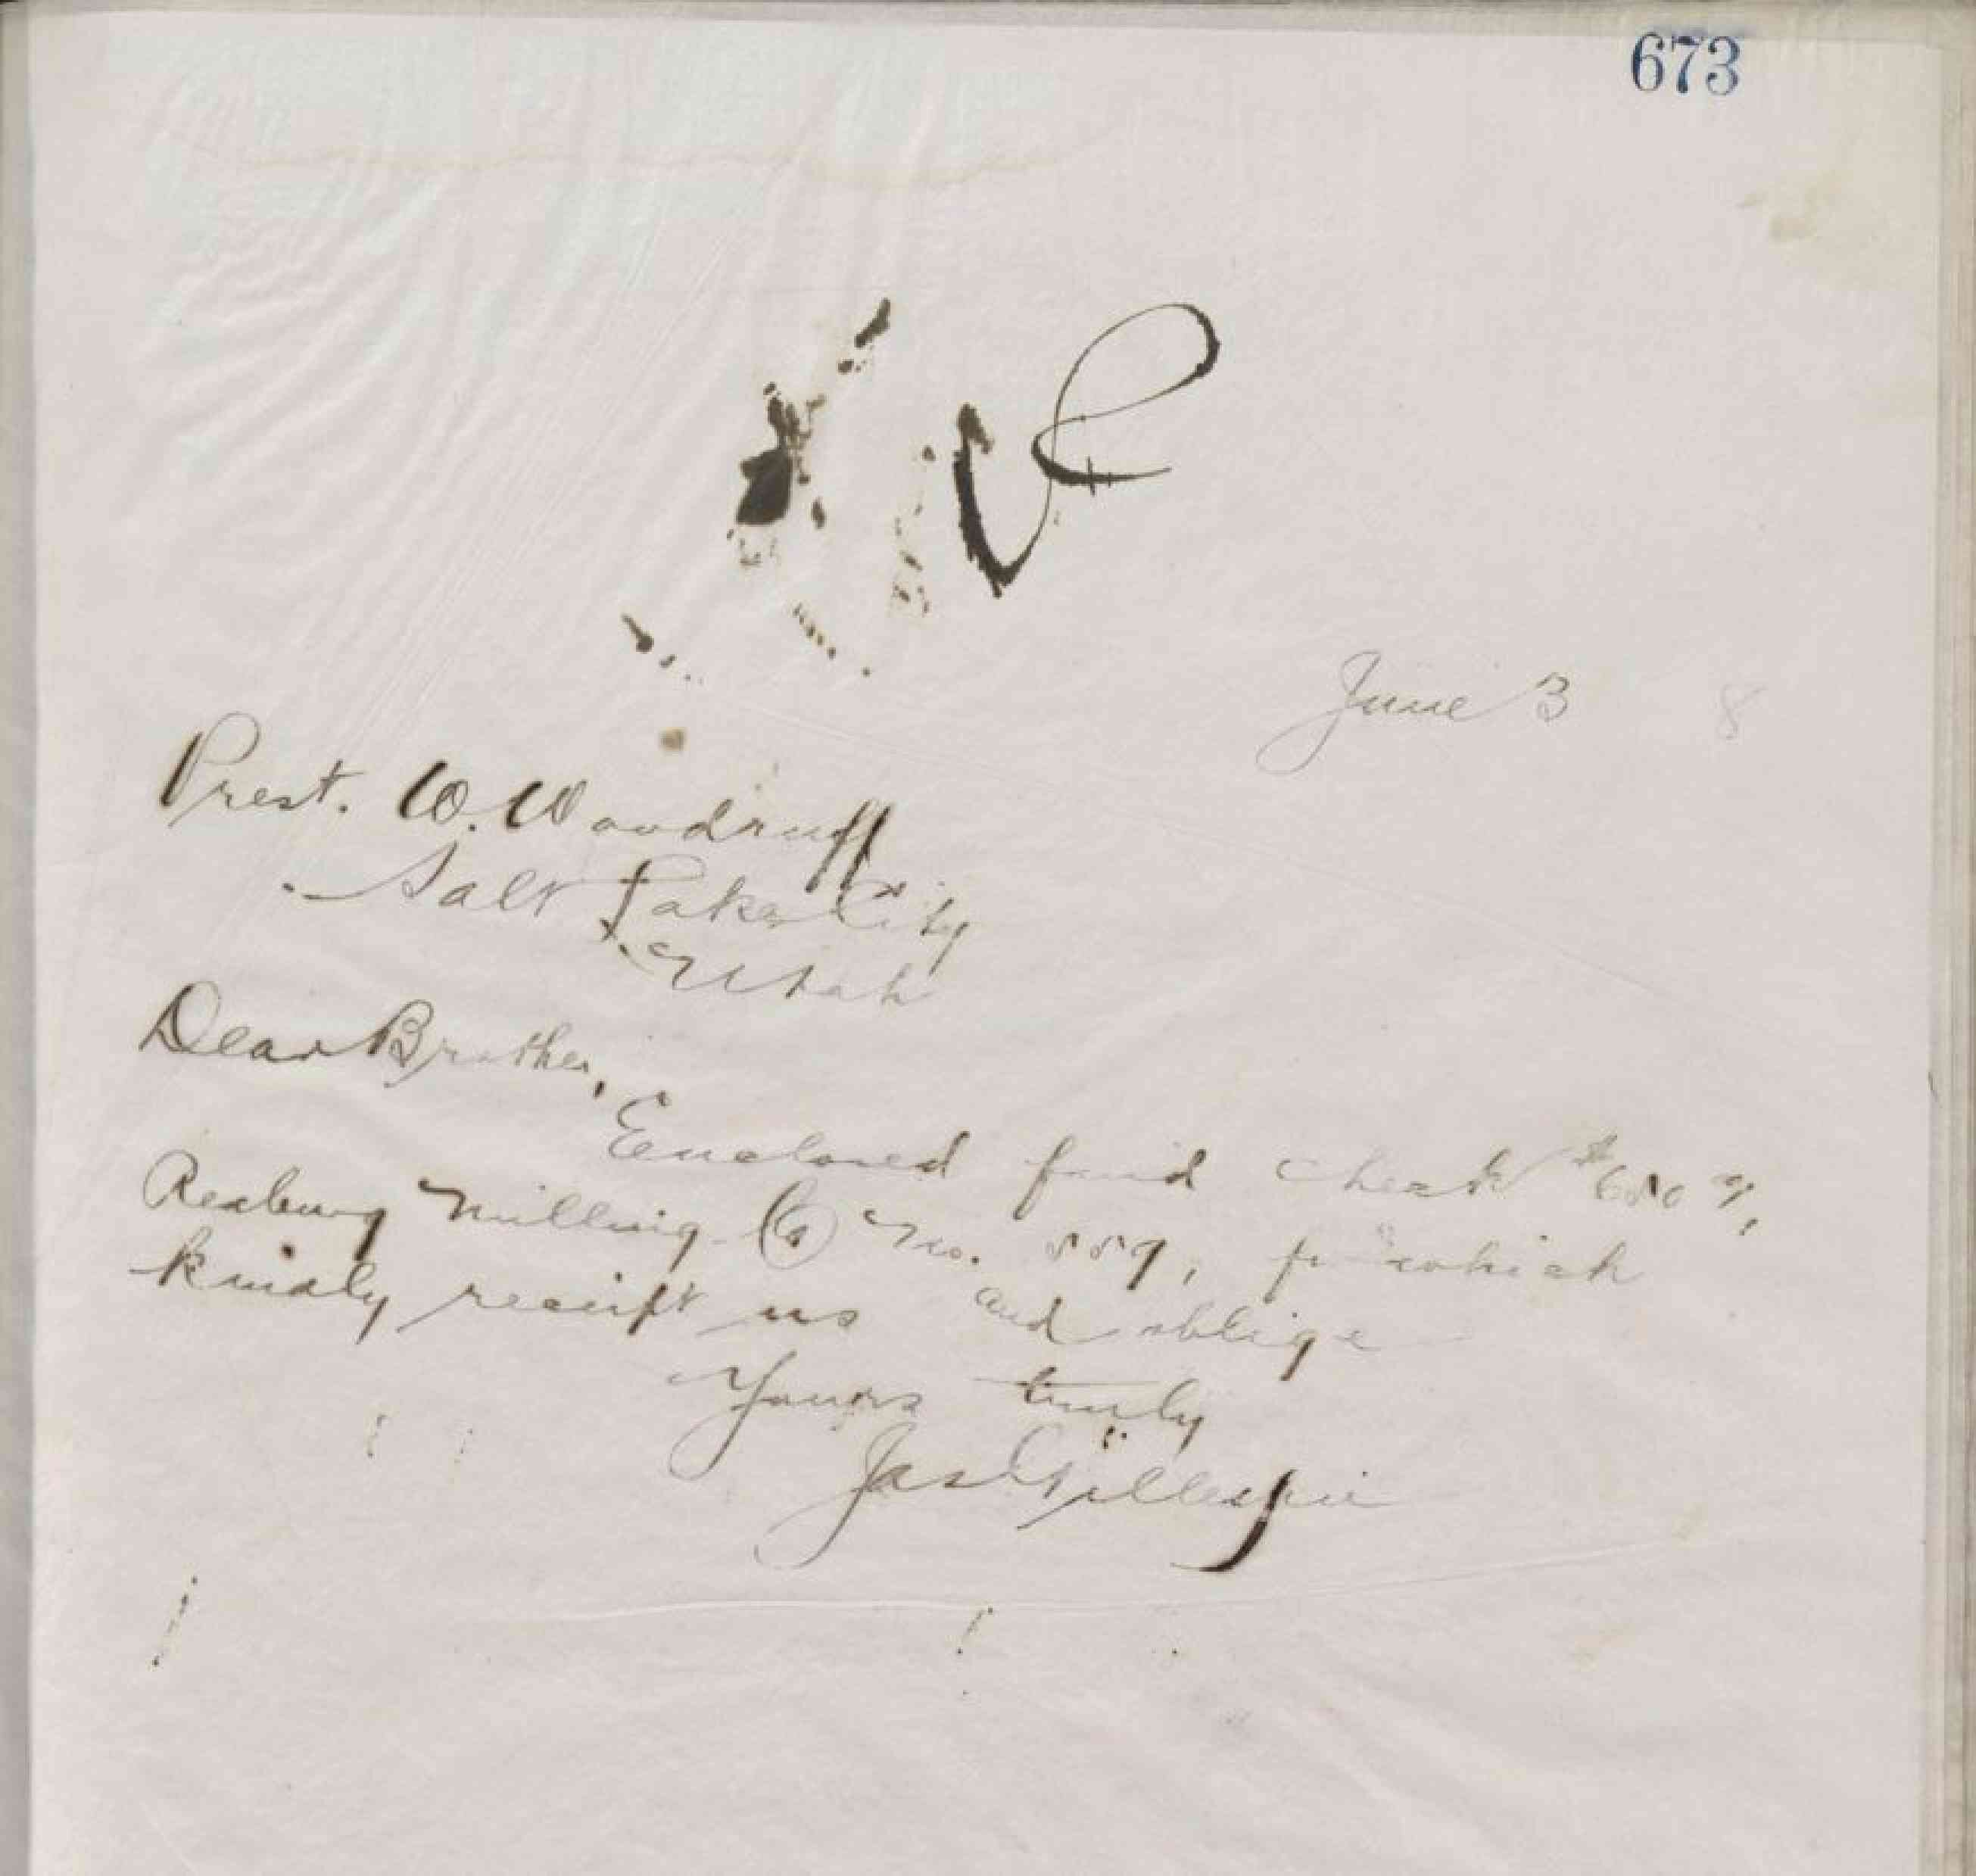 673
June 3 8
Prest. W. Woodruff
Salt Lake City
Utah
Dear Brother,
Enclosed find check
Rexburg Milling Co No. 559, for which
kindly receipt us and oblige
Yours truly
Jas Gillespie